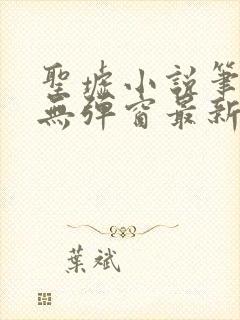 聖墟小說筆
無彈窗最新
葉斌